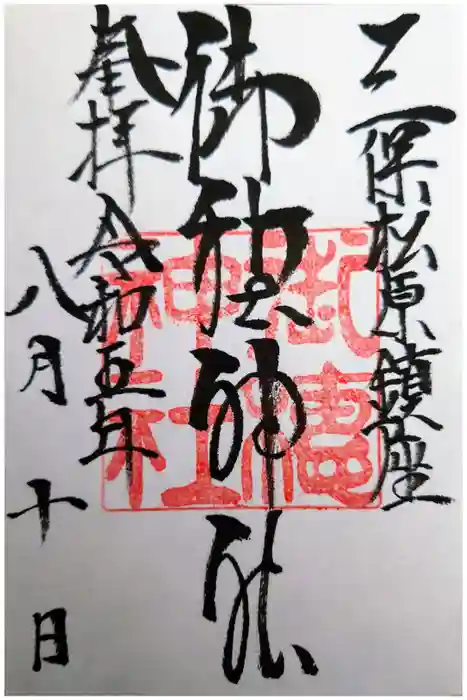 三保松原鎮座
御穂神社
奉拝 令和五年
八月十日
御穂神社